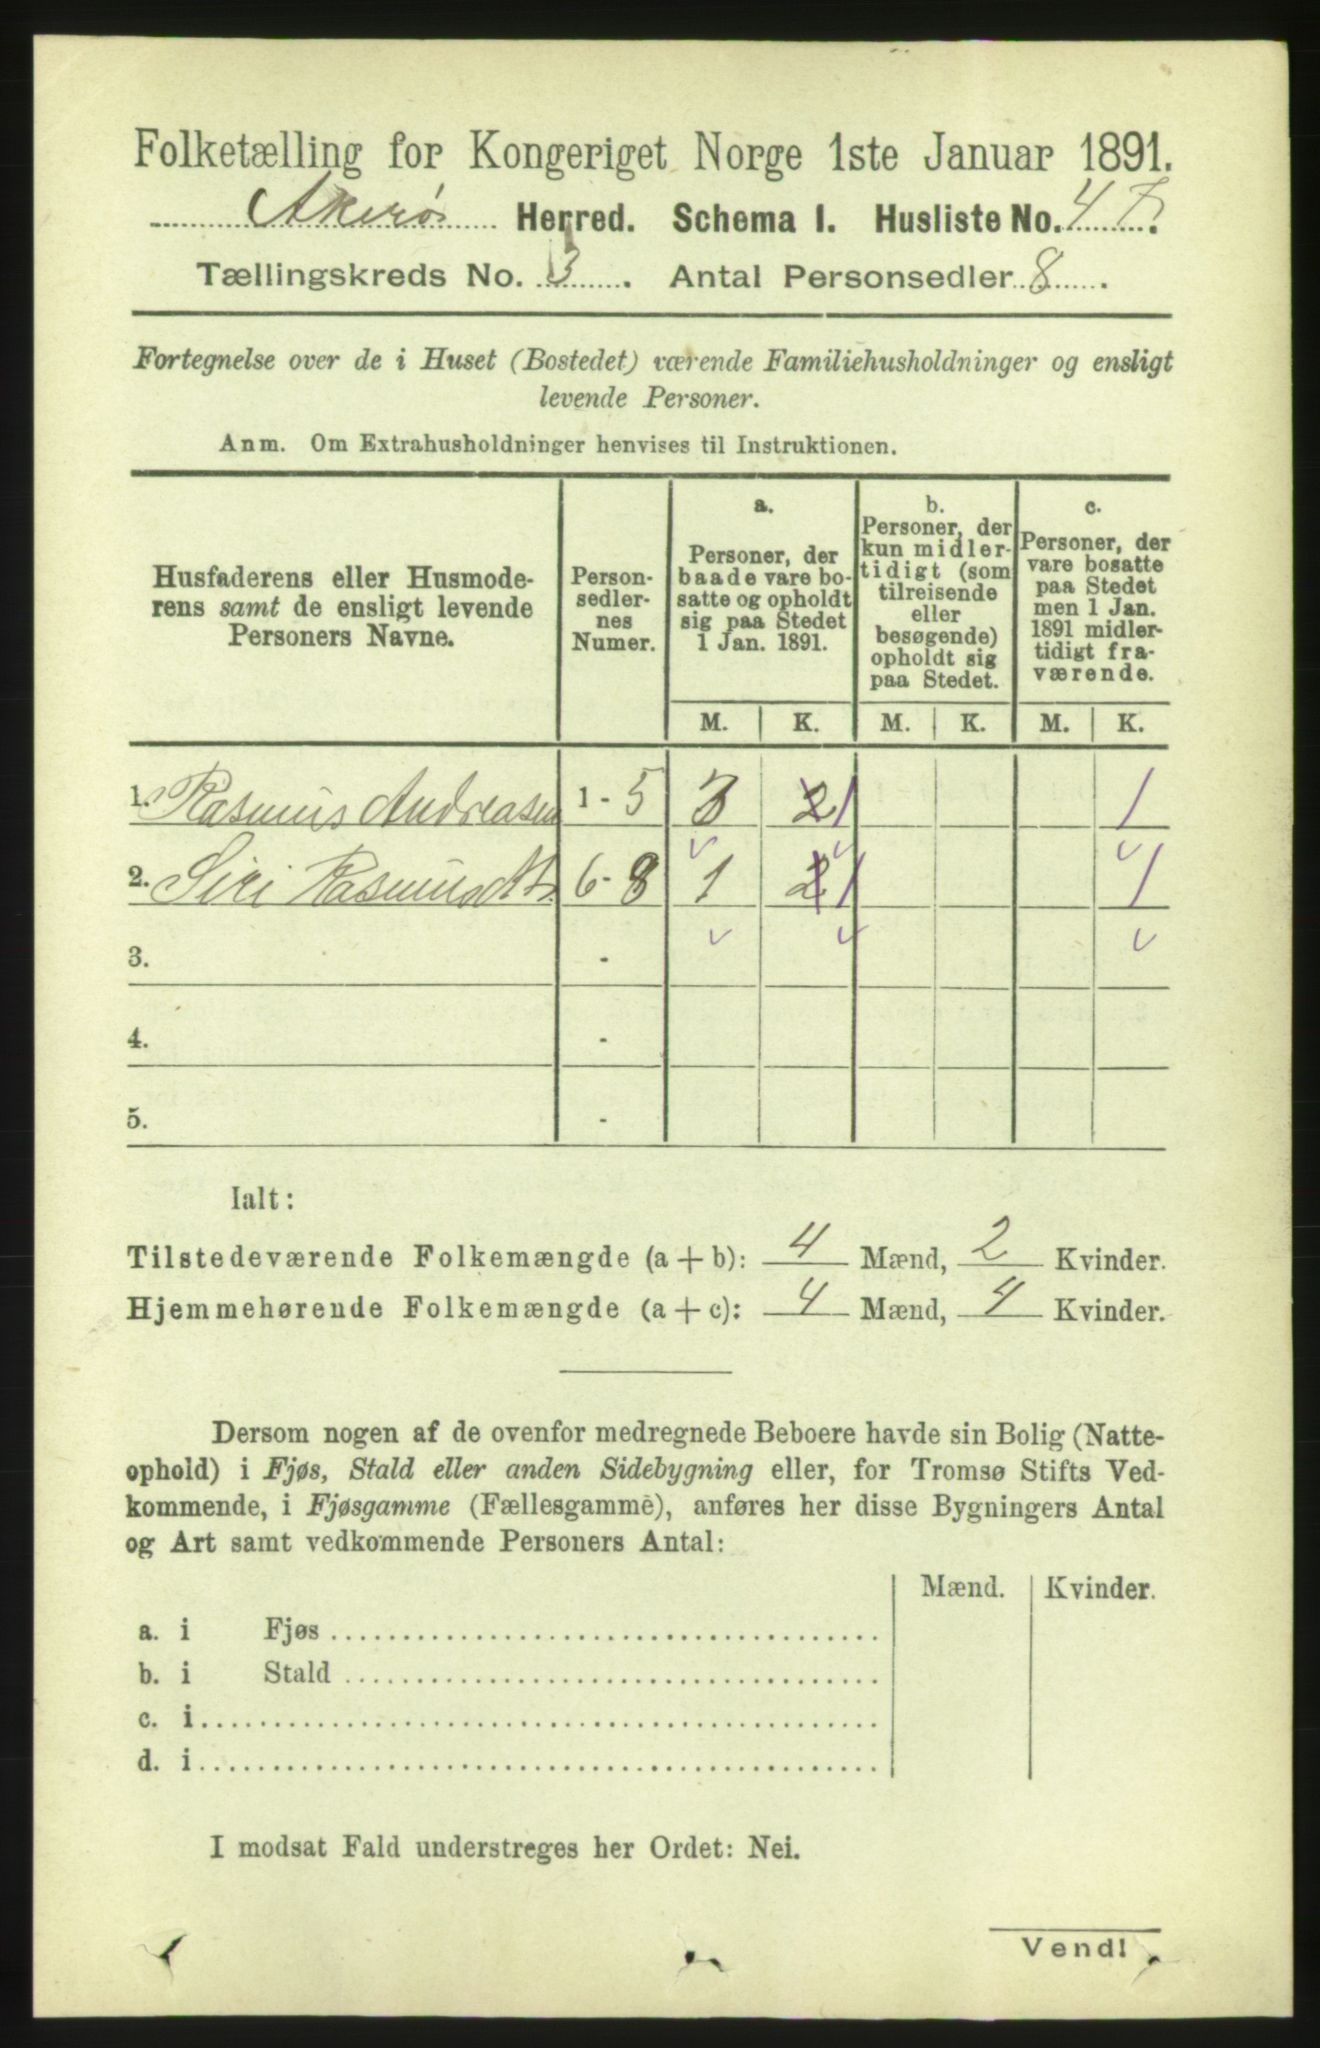 Folketælling for Kongeriget Norge 1ste Januar 1891.
Akerø Herred. Schema I. Husliste No. 47.
Tællingskreds No. 3. Antal Personsedler 8.
Fortegnelse over de i Huset (Bostedet) værende Familiehusholdninger og ensligt
levende Personer.
Anm. Om Extrahusholdninger henvises til Instruktionen.
Husfaderens eller Husmode-
rens samt de ensligt levende
Personers Navne.
Person-
sedler-
nes
Numer.
a.
Personer, der
baade vare bo-
satte og opholdt
sig paa Stedet
1 Jan. 1891.
b.
Personer, der
kun midler-
tidigt (som
tilreisende
eller
besøgende)
opholdt sig
paa Stedet.
c.
Personer, der
vare bosatte
paa Stedet
men 1 Jan.
1891 midler-
tidigt fra-
værende.
M. K. M. K. M. K.
1. Rasmus Andreasen 1 - 5 3 2 1 1
2. Siri Rasmusdtr. 6 - 8 1 2 1 1
3. -
4. -
5. -
Ialt:
Tilstedeværende Folkemængde (a + b): 4 Mænd, 2 Kvinder.
Hjemmehørende Folkemængde (a + c): 4 Mænd, 4 Kvinder.
Dersom nogen af de ovenfor medregnede Beboere havde sin Bolig (Natte-
ophold) i Fjøs, Stald eller anden Sidebygning eller, for Tromsø Stifts Ved-
kommende, i Fjøsgamme (Fællesgamme), anføres her disse Bygningers Antal
og Art samt vedkommende Personers Antal:
Mænd. Kvinder.
a. i Fjøs
b. i Stald
c. i
d. i
I modsat Fald understreges her Ordet: Nei.
Vend!